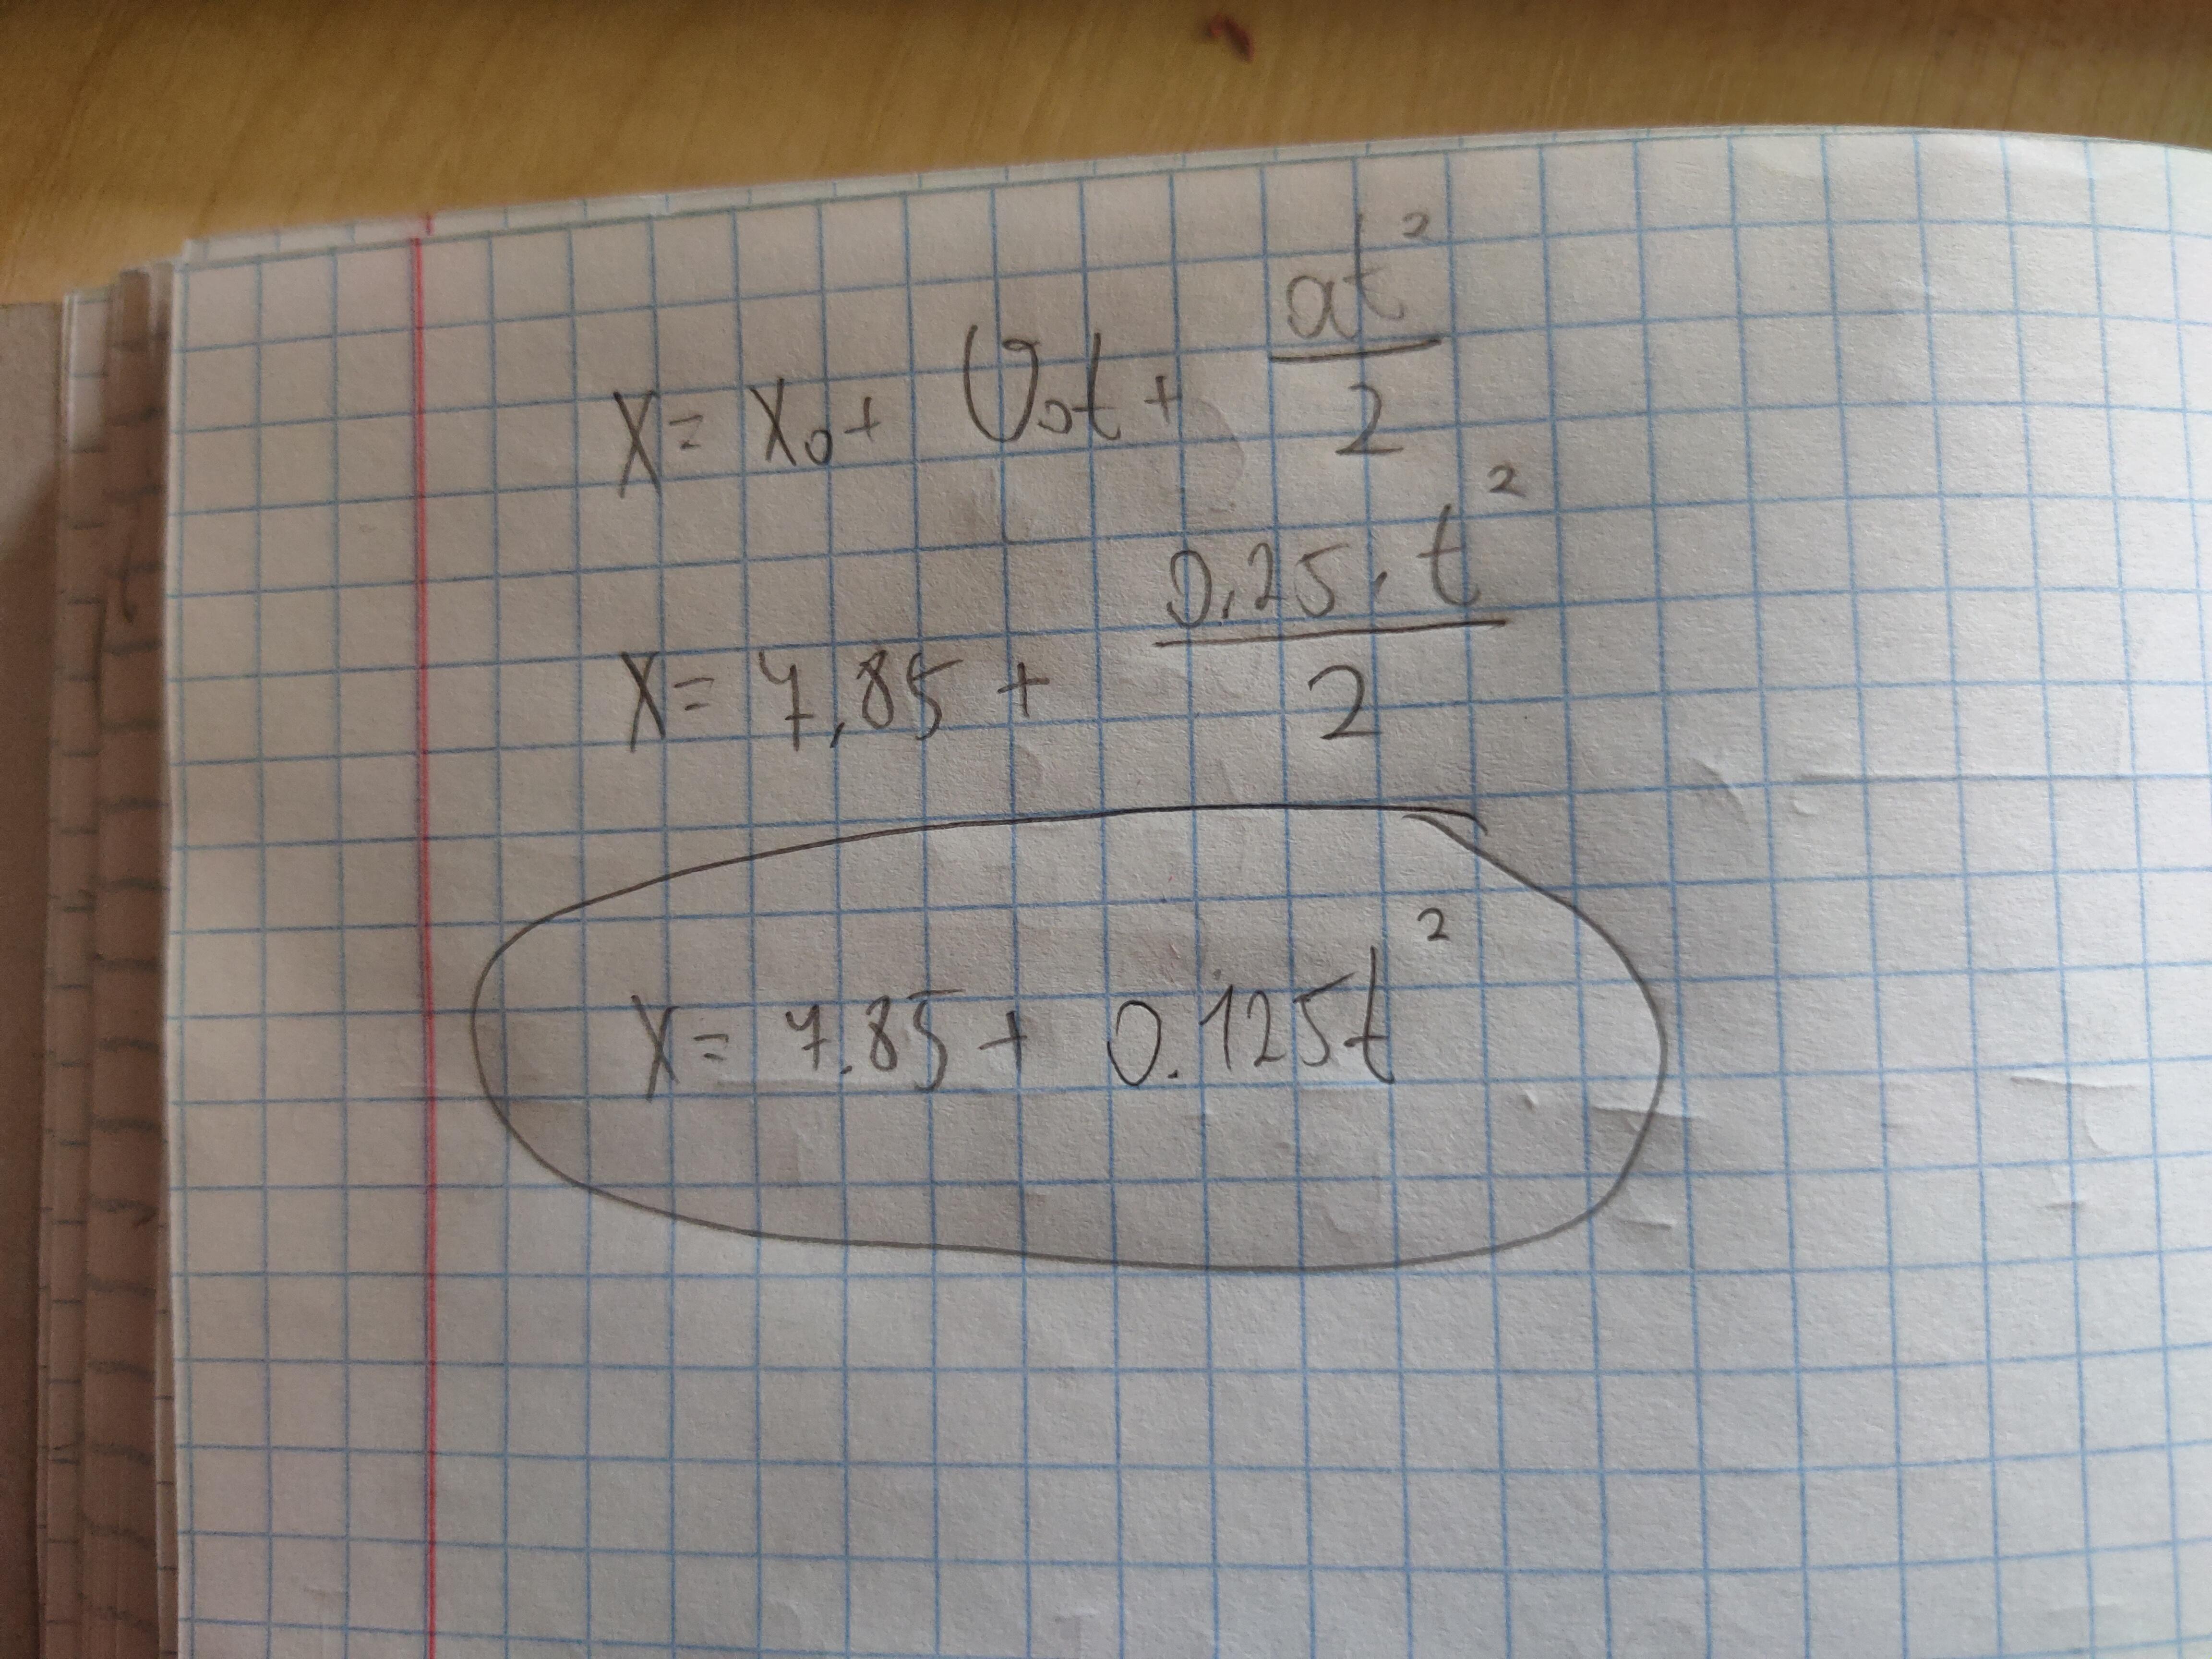 x = x₀ + υ₀t + at²/2
x = 7,85 + 0,25 · t²/2
x = 7.85 + 0.125t²